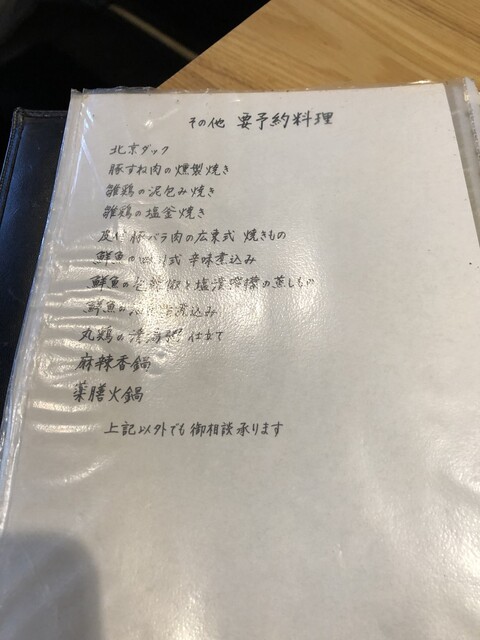 その他 要予約料理
北京ダック
豚すね肉の燻製焼き
雛鶏の泥包み焼き
雛鶏の塩釜焼き
皮付豚バラ肉の広東式 焼きもの
鮮魚の四川式 辛味煮込み
鮮魚の 塩漬 檸檬の蒸しもの
鮮魚の 煮込み
丸鶏の 仕立て
麻辣香鍋
薬膳火鍋
上記以外でも御相談承ります